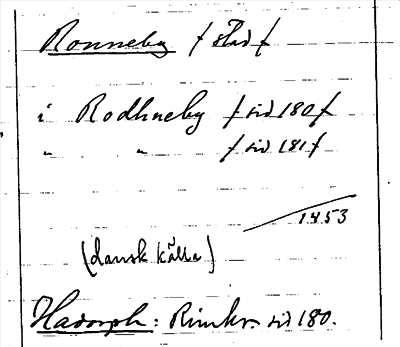 Ronneby / stad /
i Rodhneby / sid 180 /
" " / sid 181 /
1453
(dansk källa)
Hadorph: Rimkr. sid 180.